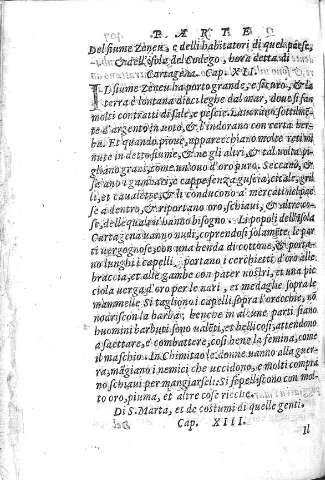 PARTE
Del fiume Zeneu, e delli habitatori di quel paese,
& dell'isola del Codego, hora detta di
Cartagena. Cap. XII.
IL fiume Zeneu ha porto grande, e sicuro, & la
terra è lontana dieci leghe dal mar, doue si fan
molti contratti di sale, e pesce. Lauorano sottilmẽ
te d'argento in uoto, & l'indorano con certa her
ba. Et quando pioue, apparecchiano molte reti mi
nute in detto fiume, & ne gli altri, & tal uolta pi-
gliano grani, come un'ouo d'oro puro. Seccano, &
se ano i gambari, e cappe senza guscia, cicale, gril
li, et caualette, & li conducono a' mercati nel pae
se a dentro, & riportano oro, schiaui, & altre co-
se, delle quali hanno bisogno. Li popoli dell'isola
Cartagena uanno nudi, coprendosi solamẽte le par
ti uergognose, con una benda di cottone, & porta-
no lunghi i capelli. portano i cerchietti d'oro alle
braccia, et alle gambe con pater nostri, et una pic
ciola uerga d'oro per le nari, et medaglie sopra le
mammelle. Si tagliano i capelli sopra l'orecchie, nõ
nodriscon la barba; benche in alcune parti siano
huomini barbuti sono ualẽti, et bellicosi, attendono
a saettare, e combattere, cosi bene la femina, come
il maschio. In Chimitao le donne uanno alla guer-
ra, mãgiano i nemici che uccidono, e molti compra
no schiaui per mangiarseli: Si sepelliscono con mol
to oro, piuma, et altre cose ricche.
Di S. Marta, et de costumi di quelle genti.
Cap. XIII.
Il